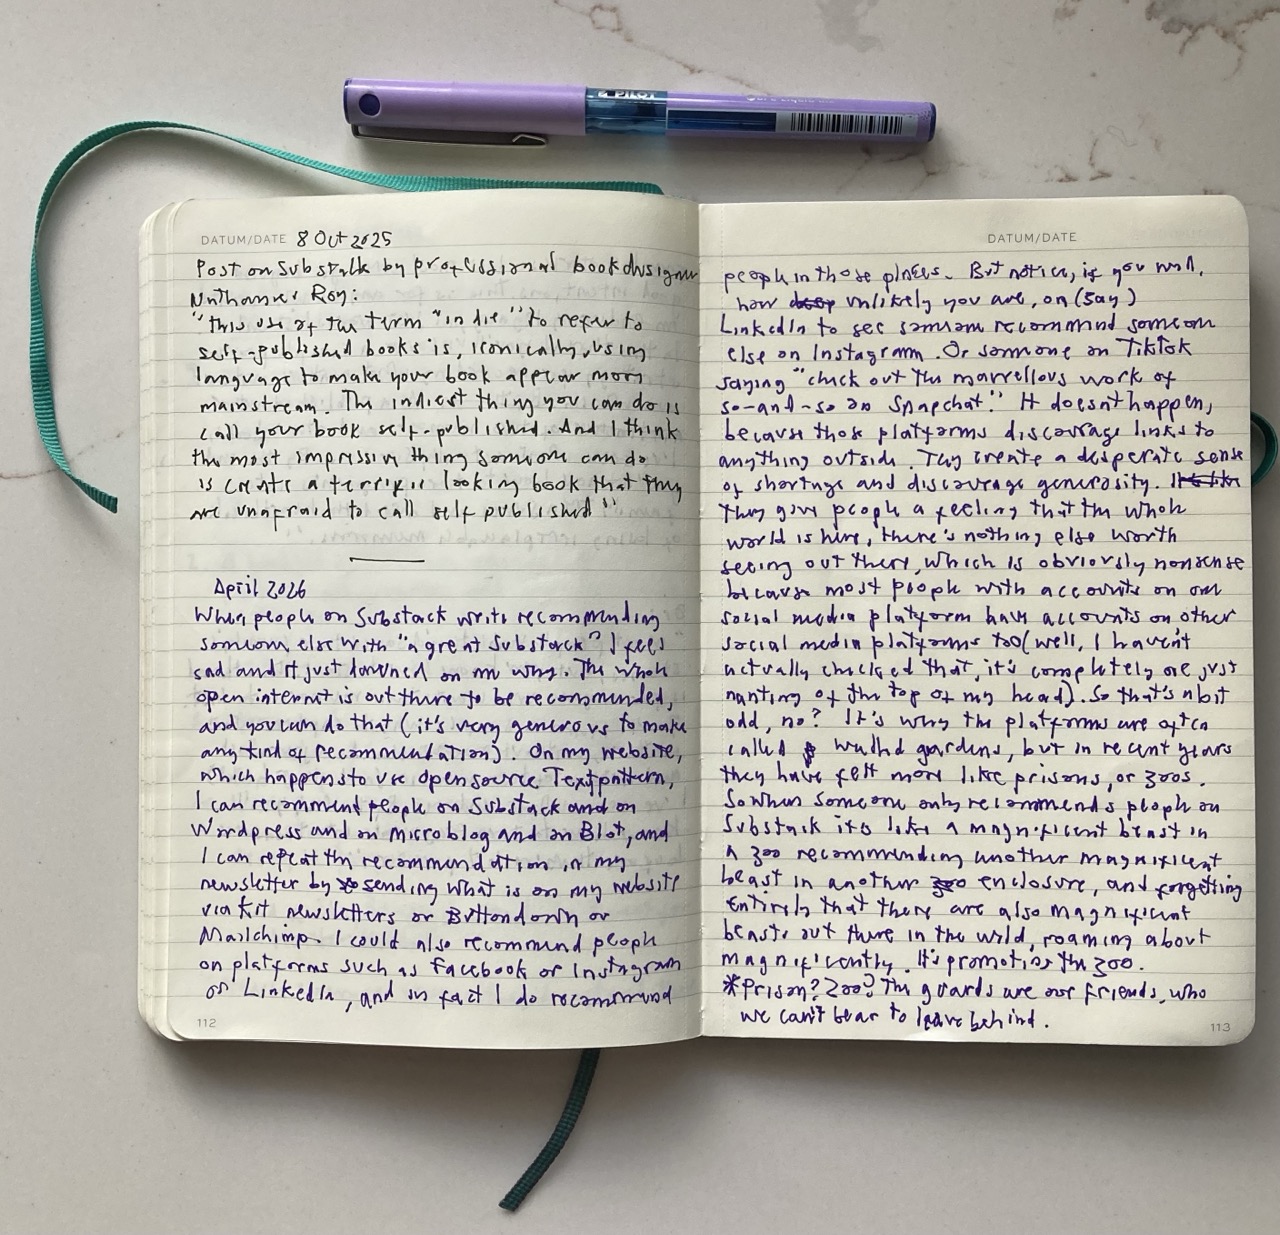 PILOT
DATUM/DATE 8 Oct 2025
Post on Substalk by professional book designer
Nathanael Roy:
"This use of the term "indie" to refer to
self-published books is, ironically, using
language to make your book appear more
mainstream. The indiest thing you can do is
call your book self-published. And I think
the most impressive thing someone can do
is create a terrific looking book that they
are unafraid to call self published"
April 2026
When people on Substack write recommending
someone else with "a great Substack" I feel
sad and it just dawned on me why. The whole
open internet is out there to be recommended,
and you can do that (it's very generous to make
any kind of recommendation). On my website,
which happens to use open source Textpattern,
I can recommend people on Substack and on
Wordpress and on microblog and on Blot, and
I can repeat the recommendation in my
newsletter by sending what is on my website
via Kit newsletters or Buttondown or
Mailchimp. I could also recommend people
on platforms such as Facebook or Instagram
or LinkedIn, and in fact I do recommend
112
DATUM/DATE
people in those places. But notice, if you will,
how unlikely you are, on (say)
LinkedIn to see someone recommend someone
else on Instagram. Or someone on TikTok
saying "check out the marvellous work of
so-and-so on Snapchat." It doesn't happen,
because those platforms discourage links to
anything outside. They create a desperate sense
of shortage and discourage generosity. It's like
They give people a feeling that the whole
world is here, there's nothing else worth
seeing out there, which is obviously nonsense
because most people with accounts on one
social media platform have accounts on other
social media platforms too (well, I haven't
actually checked that, it's completely me just
ranting off the top of my head). So that's a bit
odd, no? It's why the platforms are often
called walled gardens, but in recent years
they have felt more like prisons, or zoos.
So when someone only recommends people on
Substack it's like a magnificent beast in
a zoo recommending another magnificent
beast in another zoo enclosure, and forgetting
entirely that there are also magnificent
beasts out there in the wild, roaming about
magnificently. It's promoting the zoo.
*Prison? Zoo? The guards are our friends, who
we can't bear to leave behind.
113